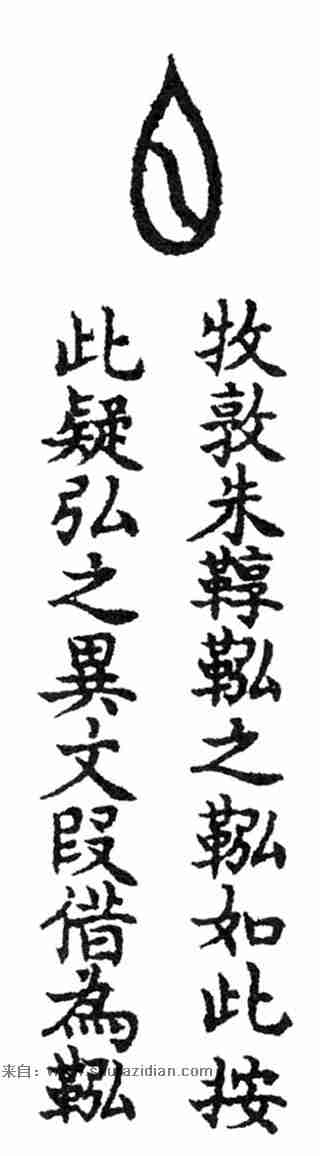 牧敦朱鞟鞃之鞃如此按
此疑弘之異文叚借為鞃
来自：www.shufazidian.com